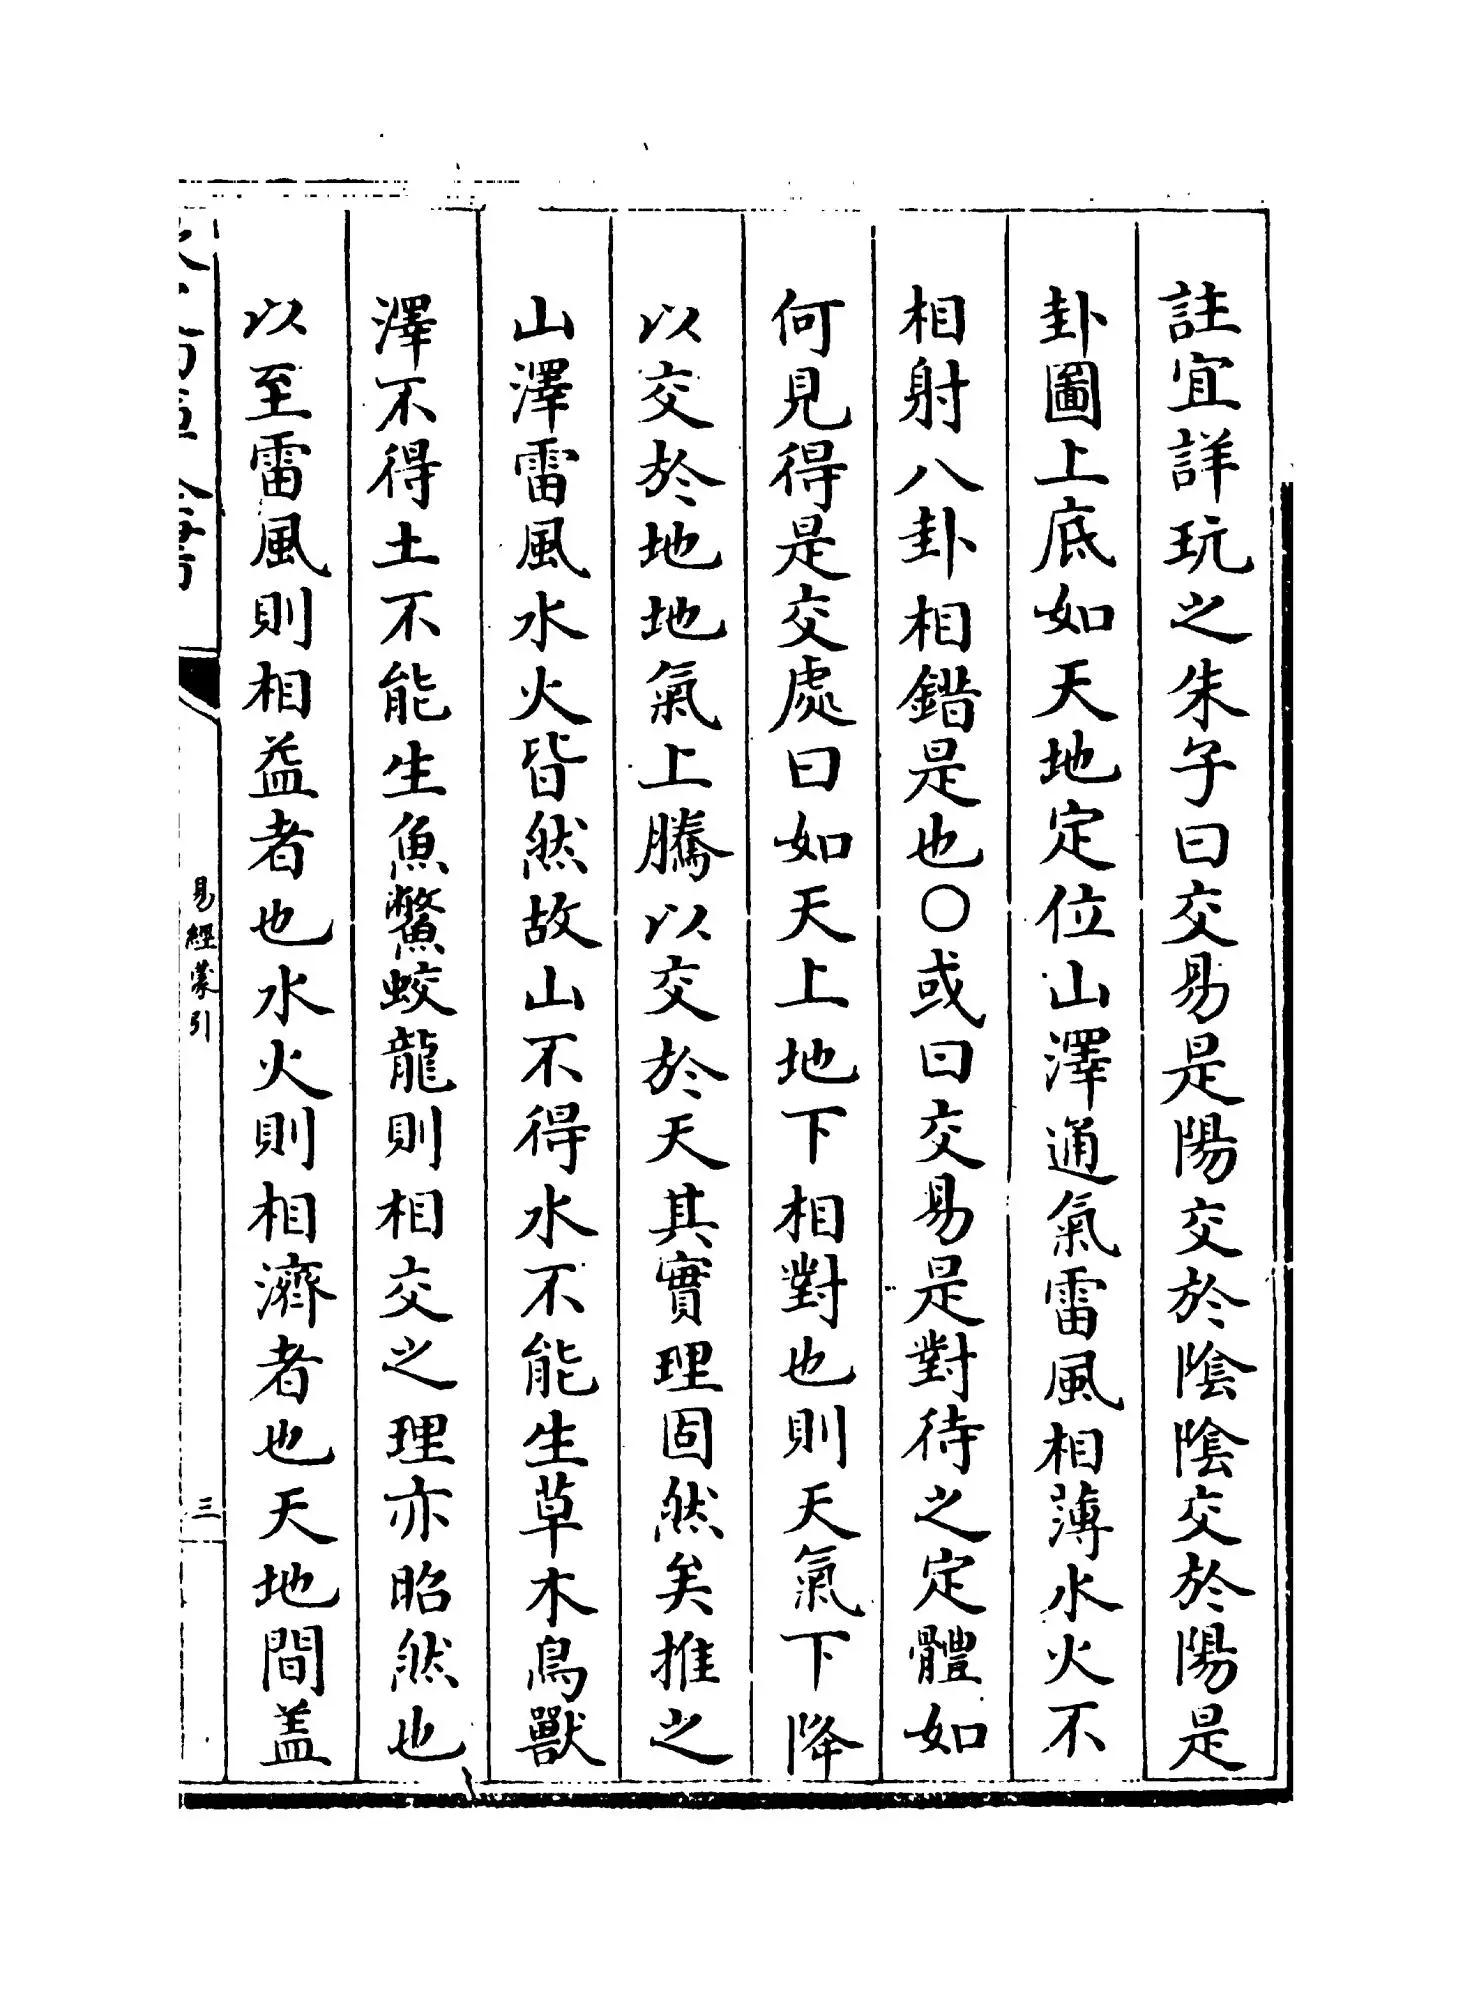 註宜詳玩之朱子曰交易是陽交於陰陰交於陽是
卦圖上底如天地定位山澤通氣雷風相薄水火不
相射八卦相錯是也〇或曰交易是對待之定體如
何見得是交處曰如天上地下相對也則天氣下降
以交於地地氣上騰以交於天其實理固然矣推之
山澤雷風水火皆然故山不得水不能生草木鳥獸
澤不得土不能生魚鱉蛟龍則相交之理亦昭然也
以至雷風則相益者也水火則相濟者也天地間盖
易經蒙引
三